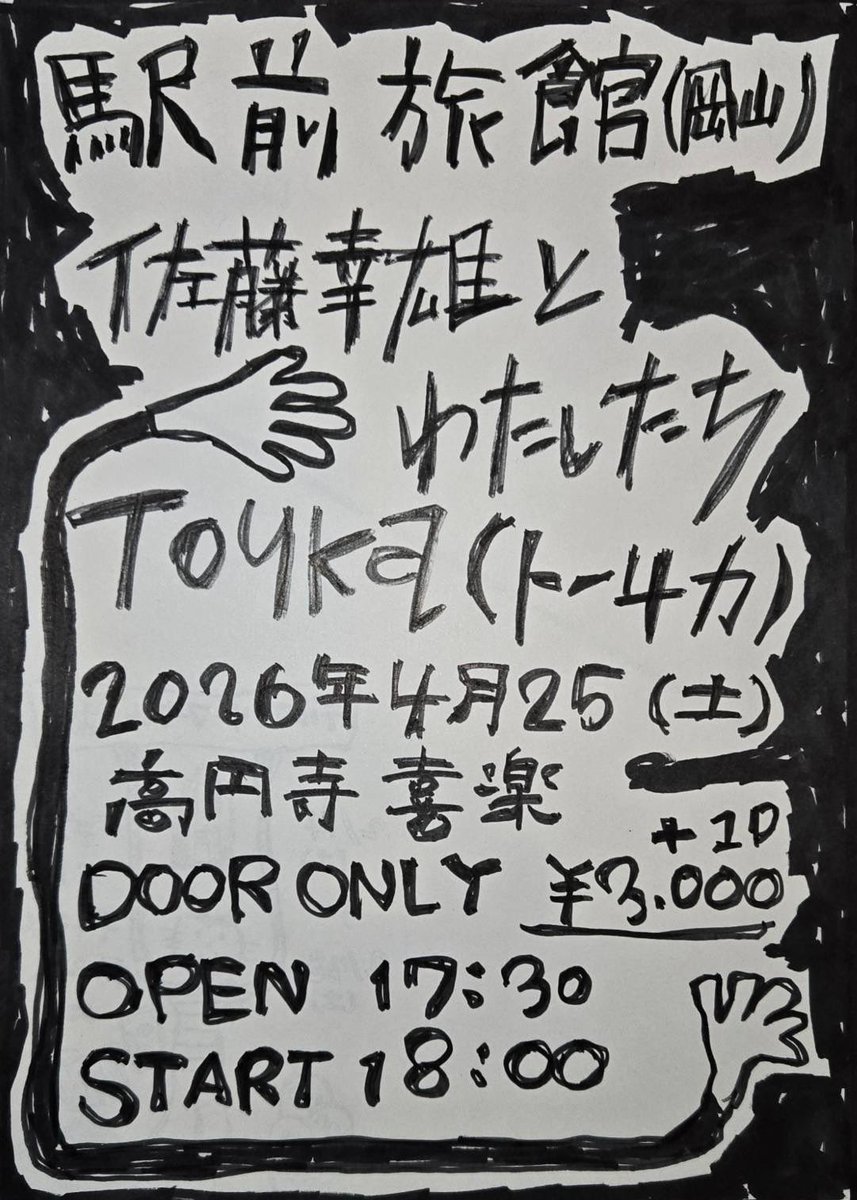 駅前旅館(岡山)
佐藤幸雄と
わたしたち
Toyka(トーチカ)
2026年4月25(土)
高円寺喜楽
+1D
DOOR ONLY ¥3.000
OPEN 17:30
START 18:00